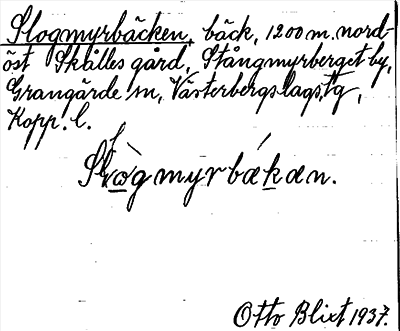 Slogmyrbäcken, bäck, 1200 m. nord-
öst Skålles gård, Stångmyrberget by,
Grangärde sn, Västerbergslags tg,
Kopp. l.
Slògmyrbákæn.
Otto Blixt 1937.